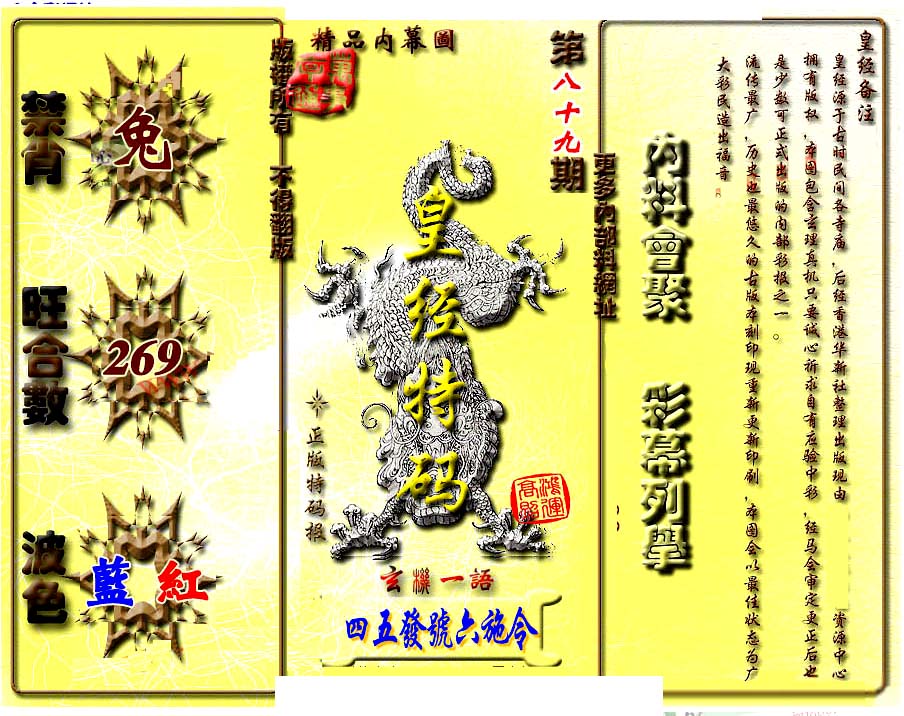 精品內幕圖
第八十九期
版權所有 不得翻版
更多內部料網址
禁肖
兔
旺合數
269
波色
藍 紅
皇经特码
正版特码报
鴻運高照
玄機一語
四五發號六施令
內料會聚 彩幕列舉
皇经备注
皇经源于古时民间各寺庙,后经香港华新社整理出版现由 资源中心
拥有版权,本图包含玄理真机只要诚心祈求自有应验中彩,经马会审定更正后也
是少数可正式出版的内部彩报之一。
流传最广,历史也最悠久的古版本刻印现重新更新印刷,本图会以最佳状态为广
大彩民造出福音。